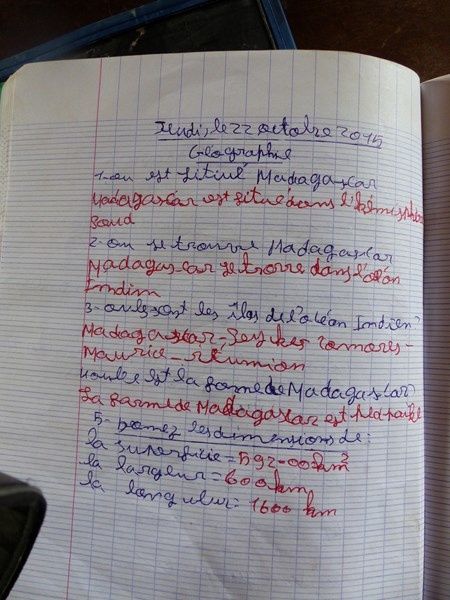 Jeudi, le 22 octobre 2015
Géographie
1-ou est situé Madagascar
Madagascar est situé dans l'hémisphère
soud
2-ou se trouve Madagascar
Madagascar se trorre dans l'oléan
Indim
3- les îlos de l'oléan Indien?
Madagascar-Seyker comores-
Maurice-réunion
est la forme de Madagascar?
La farme de Madagascar est
5- Donnez les dimensions de:
la superficie = 592-00 km²
la largeur = 600 km
la longueur = 1600 km